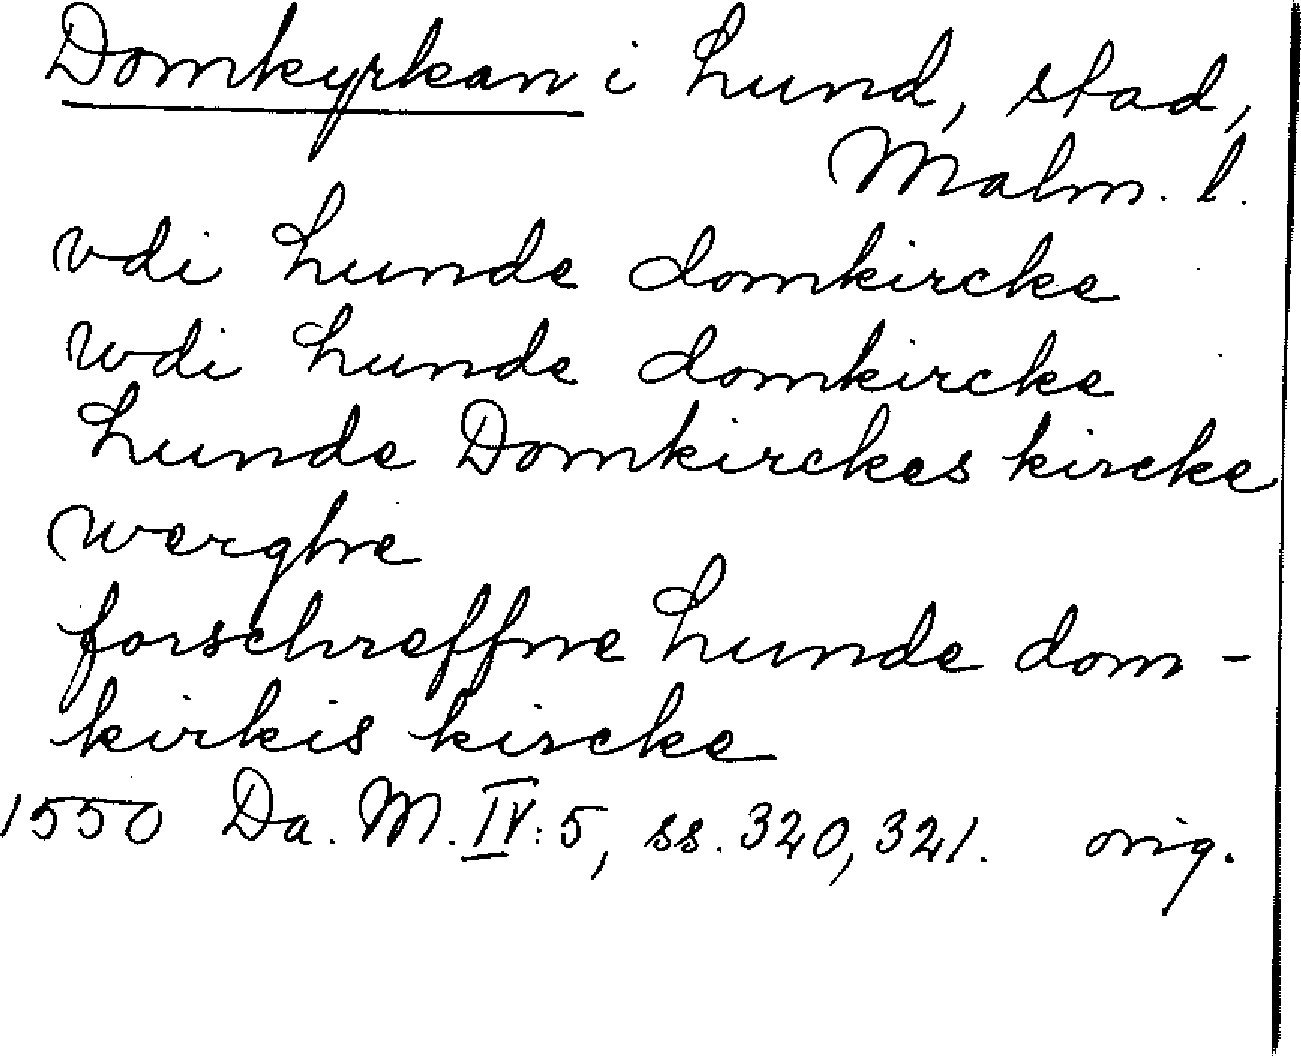 Domkyrkan i Lund, stad,
Malm. l.
vdi Lunde domkircke
wdi Lunde domkircke
Lunde Domkirckes kircke
werghe
forschreffne Lunde dom-
kirkis kircke
1550 Da. M. IV: 5, ss. 320, 321. orig.